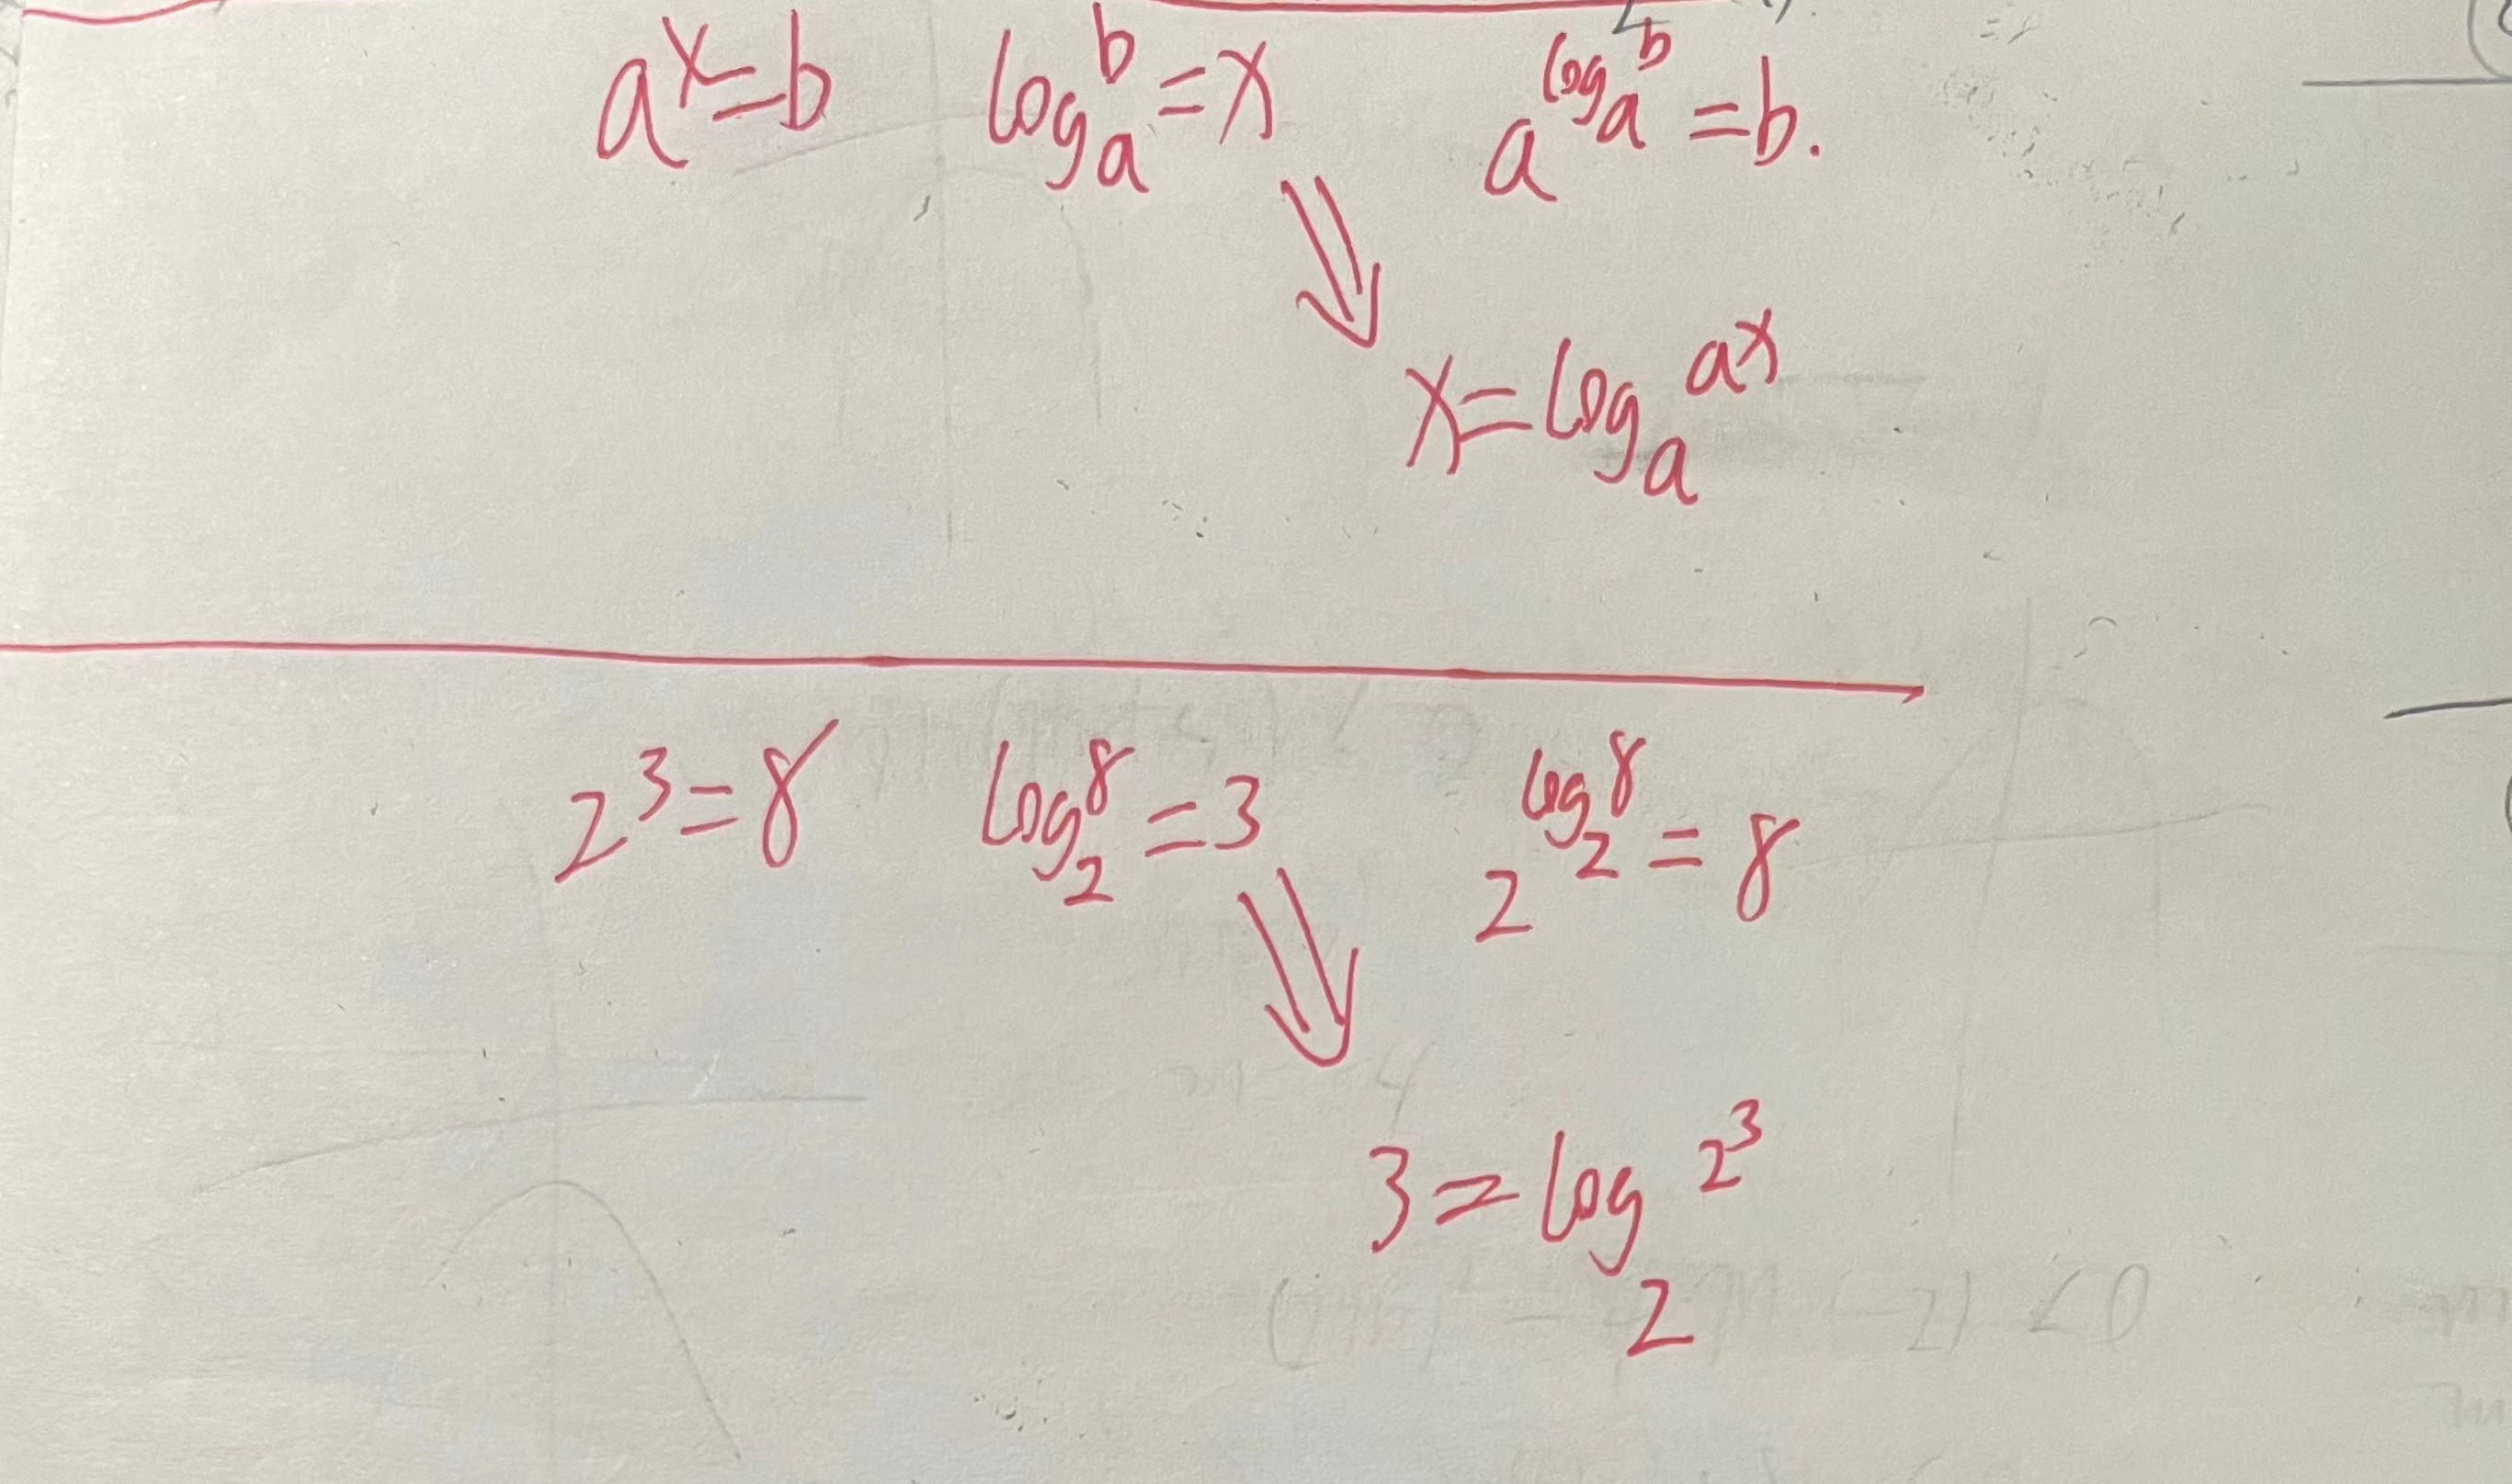 aˣ=b   logₐᵇ=x   a^(logₐᵇ)=b.
x=logₐ^(aˣ)
2³=8   log₂⁸=3   2^(log₂⁸)=8
3=log₂^(2³)